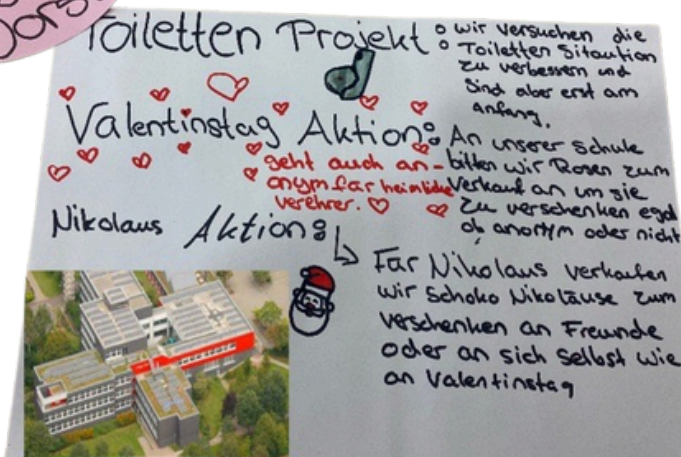 Toiletten Projekt:
wir versuchen die
Toiletten Sitaution
zu verbessern und
sind aber erst am
anfang.
Valentinstag Aktion:
An unserer Schule
bitten wir Rosen zum
Verkauf an um sie
zu verschenken egal
ob anonym oder nicht
geht auch an-
onym für heimliche
verehrer.
Nikolaus Aktion:
Für Nikolaus verkaufen
wir Schoko Nikoläuse zum
verschenken an Freunde
oder an sich selbst wie
an Valentinstag